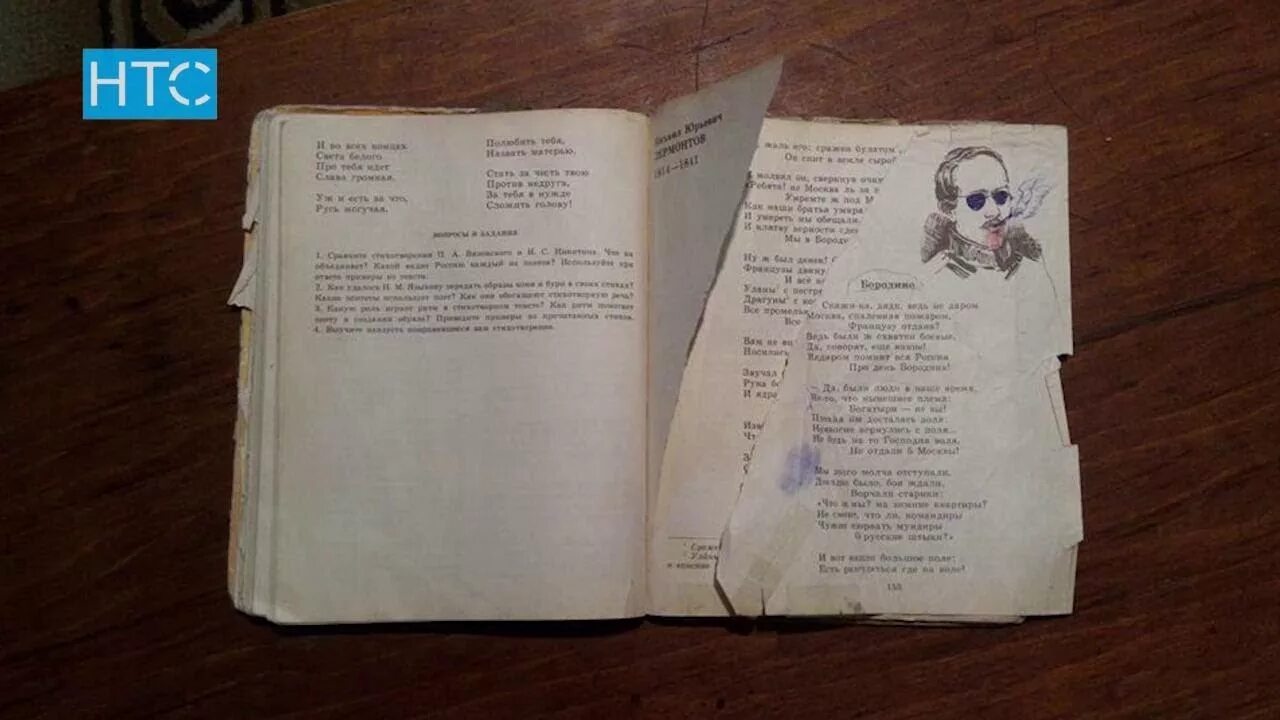 НТС
И во всех концах
Света белого
Про тебя идет
Слава громкая.
Уж и есть за что,
Русь могучая,
Полюбить тебя,
Назвать матерью,
Стать за честь твою
Против недруга,
За тебя в нужде
Сложить голову!
ВОПРОСЫ И ЗАДАНИЯ
1. Сравните стихотворения П. А. Вяземского и И. С. Никитина. Что их
объединяет? Какой видит Россию каждый из поэтов? Используйте при
ответе примеры из текста.
2. Как удалось Н. М. Языкову передать образы коня и бури в своих стихах?
Какие эпитеты использует поэт? Как они обогащают стихотворную речь?
3. Какую роль играет ритм в стихотворном тексте? Как ритм помогает
поэту в создании образа? Приведите примеры из прочитанных стихов.
4. Выучите наизусть понравившееся вам стихотворение.
Михаил Юрьевич
ЛЕРМОНТОВ
1814—1841
жаль его: сражен булатом
Он спит в земле сырой
И молвил он, сверкнув очами
«Ребята! не Москва ль за
Умремте ж под М
Как наши братья умирал
И умереть мы обещали,
И клятву верности сдер
Мы в Бород
Ну ж был денек!
Французы двину
И все
Уланы с пестр
Драгуны с ко
Все промель
Все
Вам не ви
Носились
Звучал
Рука бо
И ядра
Изве
Чт
Сраже
Улан
Бородино
— Скажи-ка, дядя, ведь не даром
Москва, спаленная пожаром,
Французу отдана?
Ведь были ж схватки боевые,
Да, говорят, еще какие!
Недаром помнит вся Россия
Про день Бородина!
— Да, были люди в наше время,
Не то, что нынешнее племя:
Богатыри — не вы!
Плохая им досталась доля:
Немногие вернулись с поля...
Не будь на то Господня воля,
Не отдали б Москвы!
Мы долго молча отступали,
Досадно было, боя ждали,
Ворчали старики:
«Что ж мы? на зимние квартиры?
Не смеют, что ли, командиры
Чужие изорвать мундиры
О русские штыки?»
И вот нашли большое поле:
Есть разгуляться где на воле!